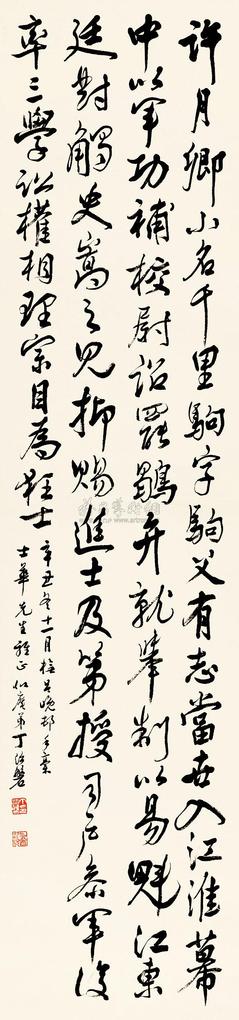 許月卿小名千里駒字駒父有志當世入江淮幕
中以軍功補校尉詔罷鷊弁就舉制以易魁江東
廷對觸史嵩之見抑賜進士及第授司戶參軍後
率三學訟權相理宗目為狂士
辛丑冬十一月梅呂晚邨手稾
士華先生雅正 如廣弟丁治磐